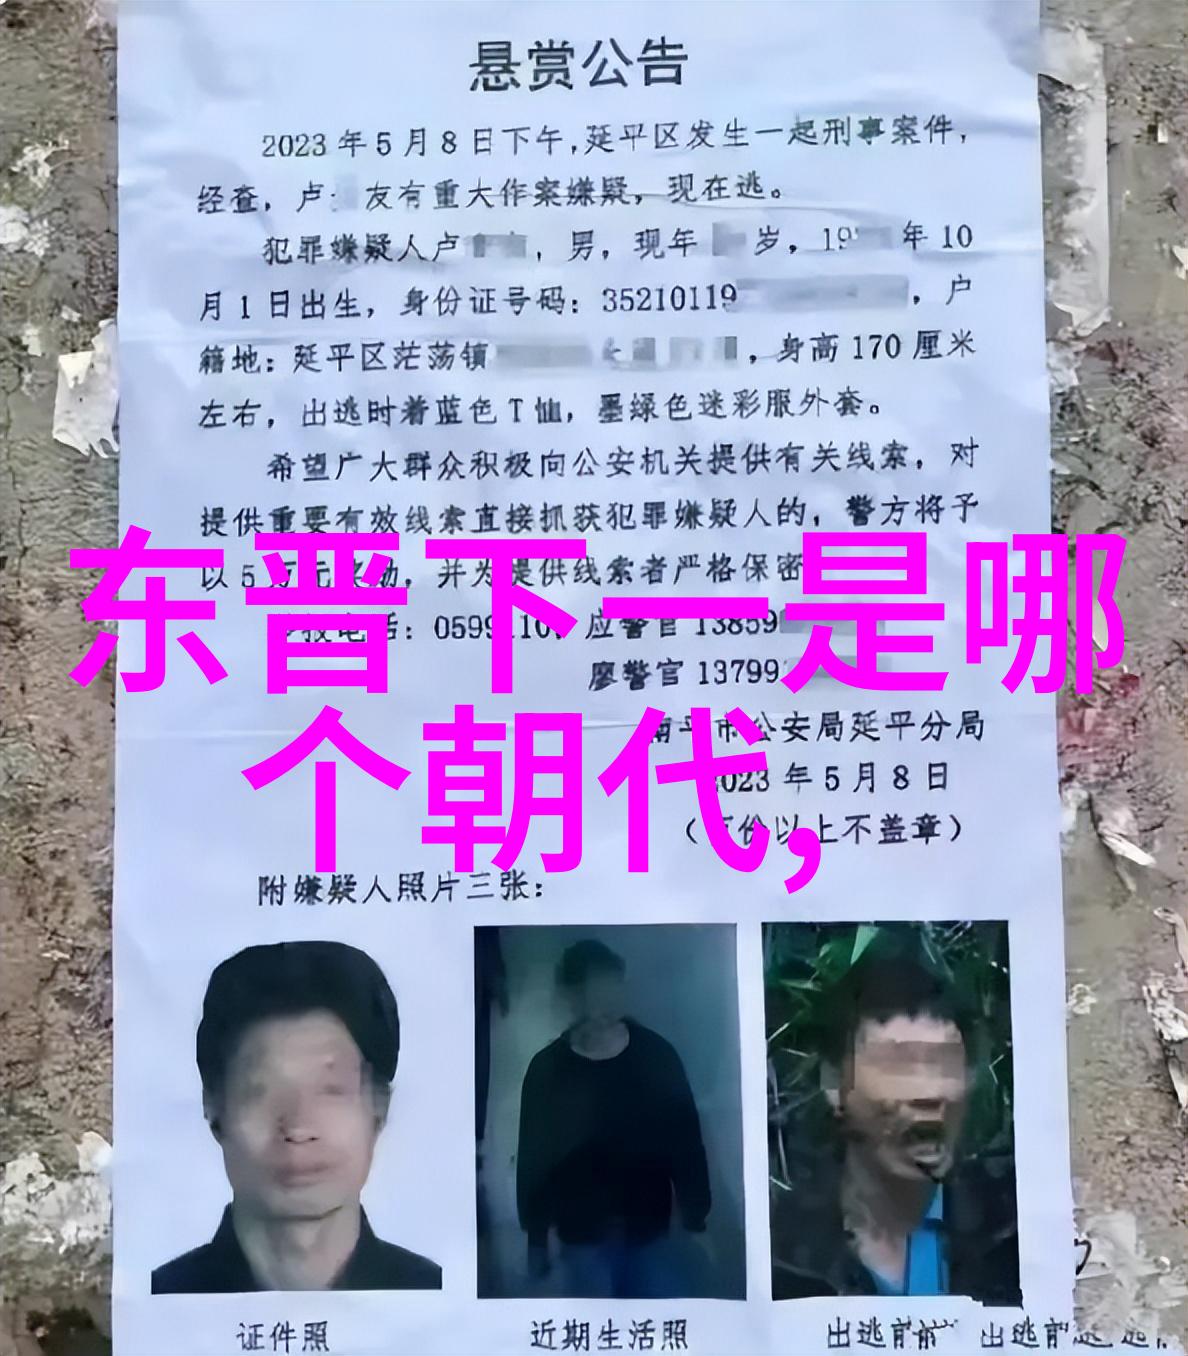 悬赏公告
2023年5月8日下午,延平区发生一起刑事案件,
经查，卢 友有重大作案嫌疑，现在逃。
犯罪嫌疑人卢 ，男，现年 岁，19 年10
月1日出生，身份证号码：35210119 ，户
籍地：延平区茫荡镇 ，身高170厘米
左右，出逃时着蓝色T恤，墨绿色迷彩服外套。
希望广大群众积极向公安机关提供有关线索，对
提供重要有效线索直接抓获犯罪嫌疑人的，警方将予
以5万元 ，并为提供线索者严格保密
东晋下一是哪
个朝代,
电话：0599110，应警官13859
廖警官13799
南平市公安局延平分局
2023年5月8日
（ 份以上不盖章）
附嫌疑人照片三张：
证件照
近期生活照
出逃前 出逃前